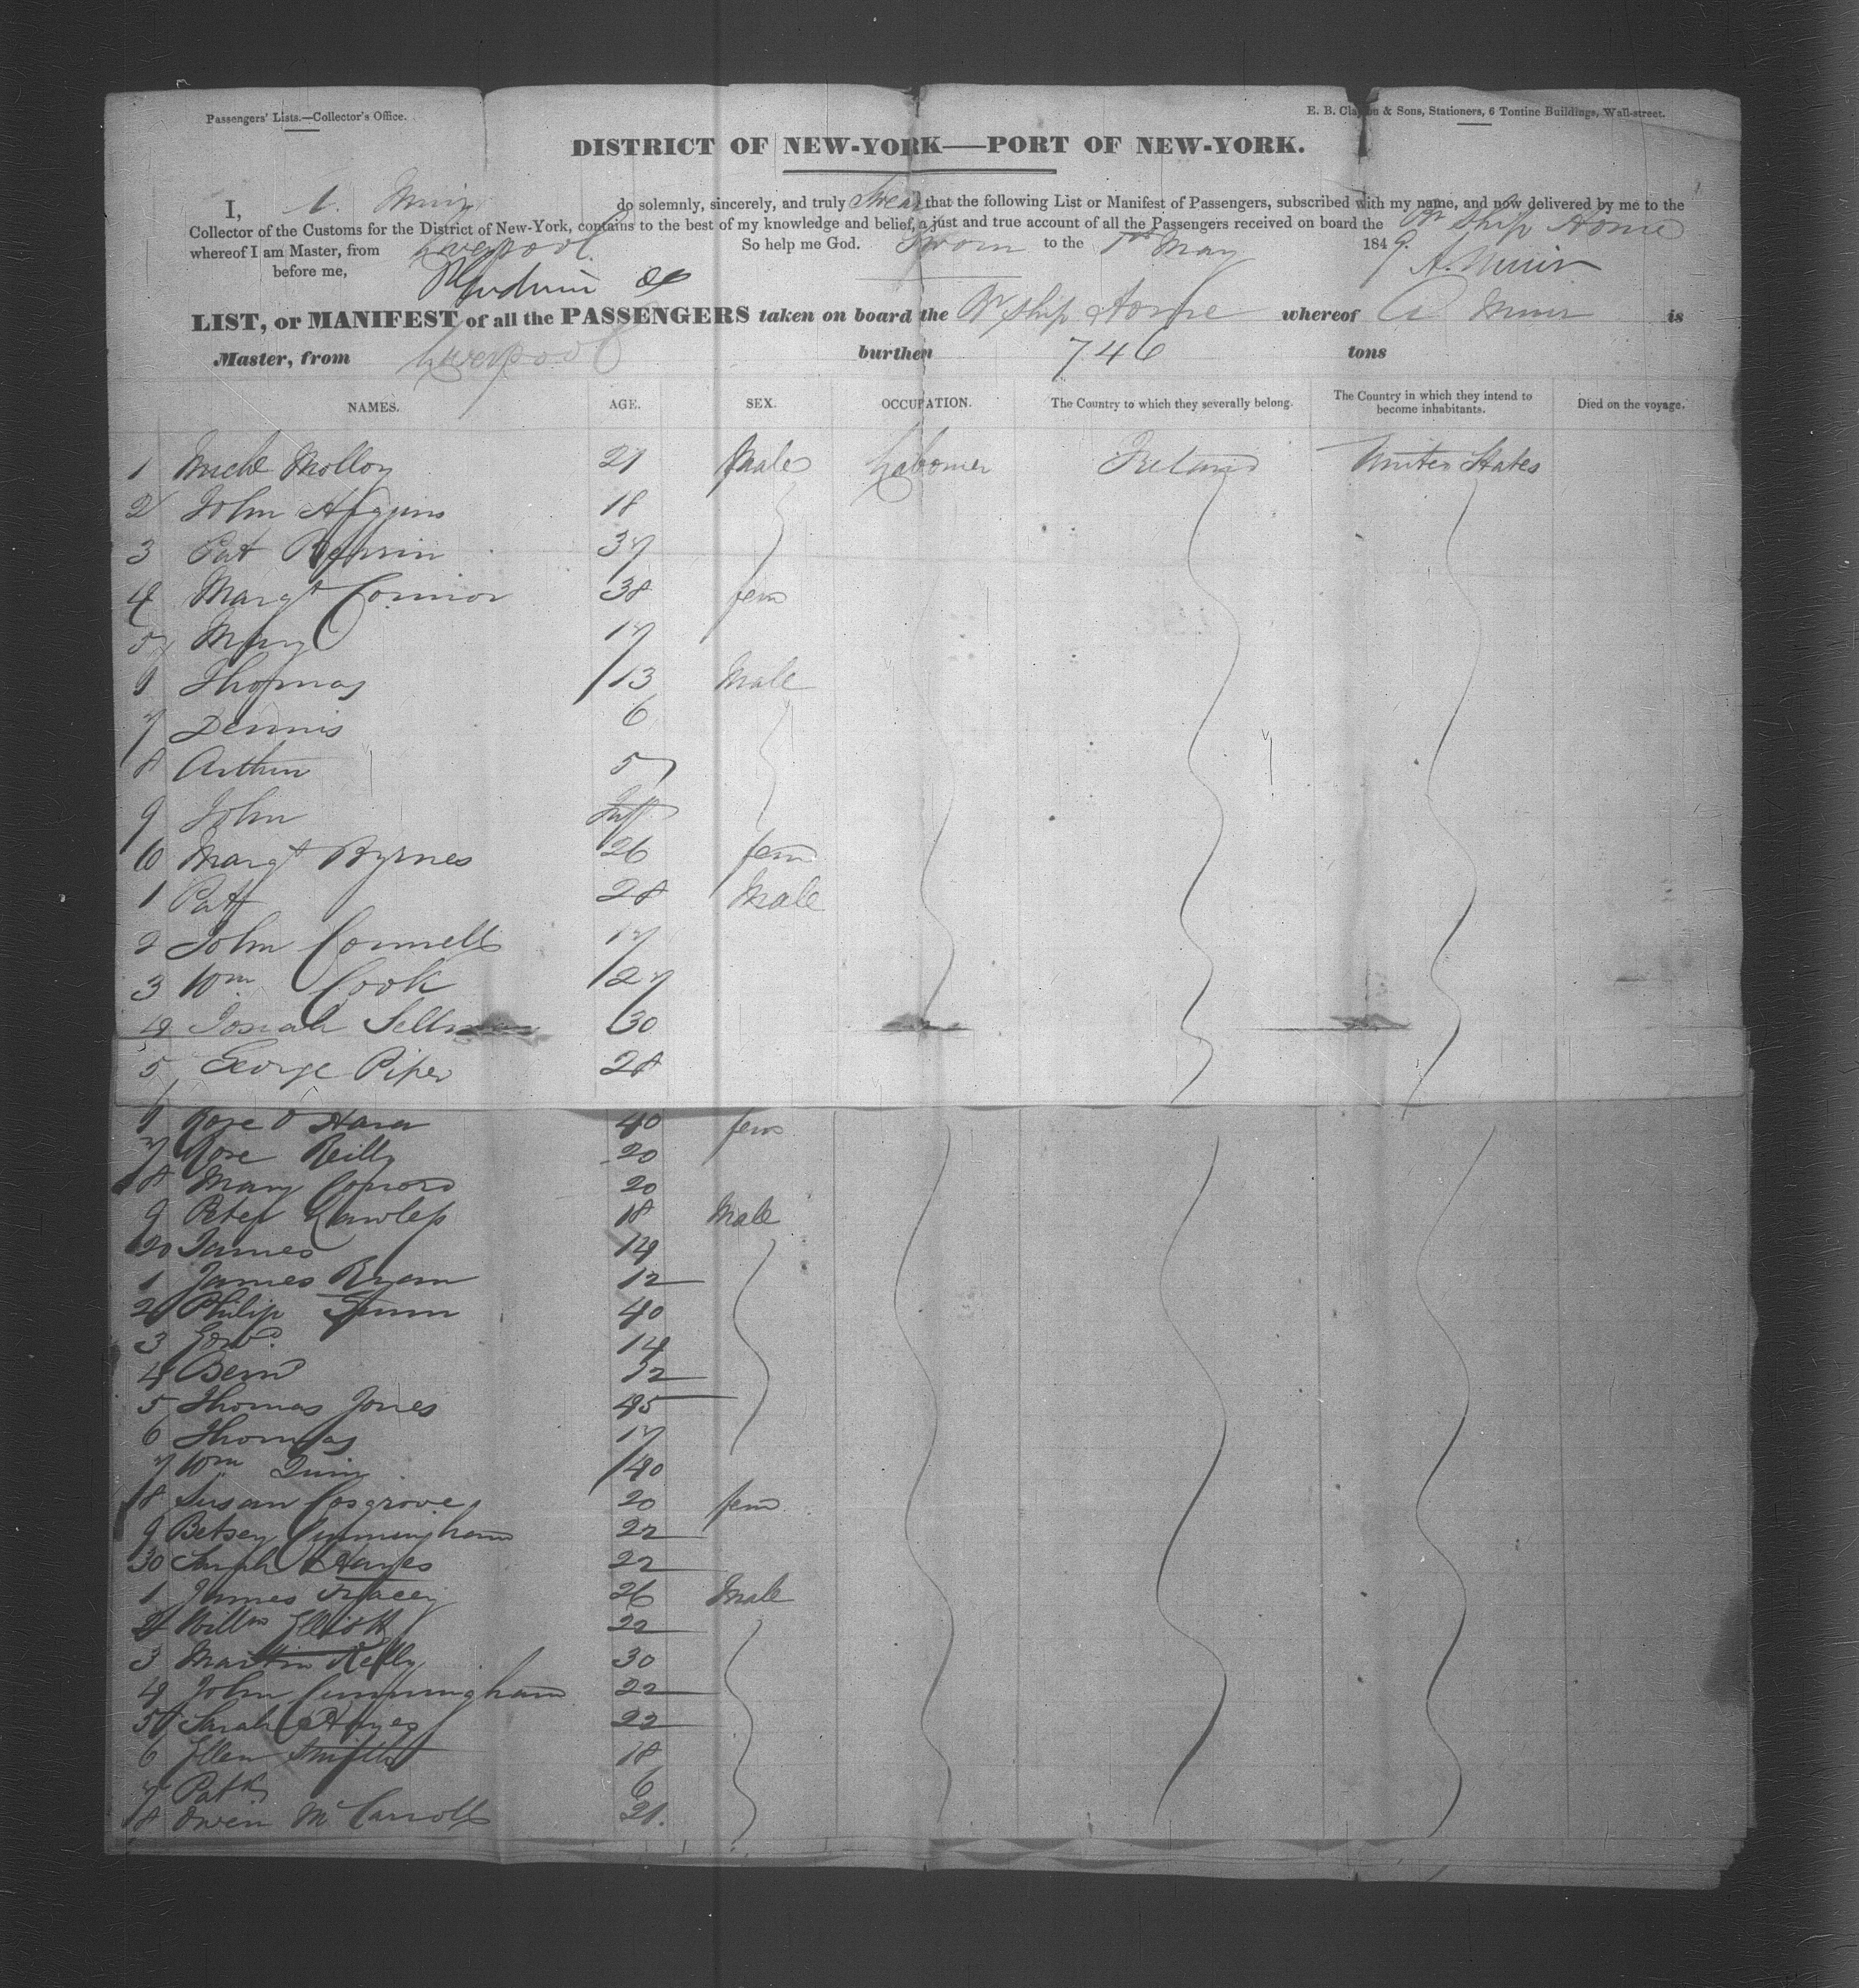 Passengers' Lists.—Collector's Office.
E. B. Clayton & Sons, Stationers, 6 Tontine Buildings, Wall-street.
DISTRICT OF NEW-YORK—PORT OF NEW-YORK.
I, A. Muir do solemnly, sincerely, and truly Swear that the following List or Manifest of Passengers, subscribed with my name, and now delivered by me to the
Collector of the Customs for the District of New-York, contains to the best of my knowledge and belief, a just and true account of all the Passengers received on board the Br Ship Home
whereof I am Master, from Liverpool So help me God. Sworn to the 1st May 1849.
before me, A. Muir
LIST, or MANIFEST of all the PASSENGERS taken on board the Br Ship Home whereof A Muir is
Master, from Liverpool burthen 746 tons
NAMES. AGE. SEX. OCCUPATION. The Country to which they severally belong. The Country in which they intend to become inhabitants. Died on the voyage.
1 Michl Molloy 21 Male Labourer Ireland United States
2 John Higgins 18
3 Pat 37
4 Margt Connor 38 fem
5 Mary 17
6 Thomas 13 Male
7 Dennis 6
8 Arthur 5
9 John Inft
10 Margt Byrnes 26 fem
1 Patk 28 Male
2 John Connell 17
3 Wm Cook 27
4 Josiah 30
5 George Piper 28
6 Rose O Hara 40 fem
7 Rose Reilly 20
18 Mary Connors 20
9 Peter Lawless 18 Male
20 James 14
1 James Ryan 12
2 Philip 40
3 Edwd 14
4 Bernd 12
5 Thomas Jones 45
6 Thomas 17
7 Wm Quin 40
8 Susan Cosgrove 20 fem
9 Betsey Cunningham 22
30 Sarah Hayes 22
1 James Tracey 26 Male
2 Willm Elliott 22
3 Martin Kelly 30
4 John Cunningham 22
5 Sarah Hayes 22
6 Ellen Smith 18
7 Patk 6
8 Owen McCarroll 21.